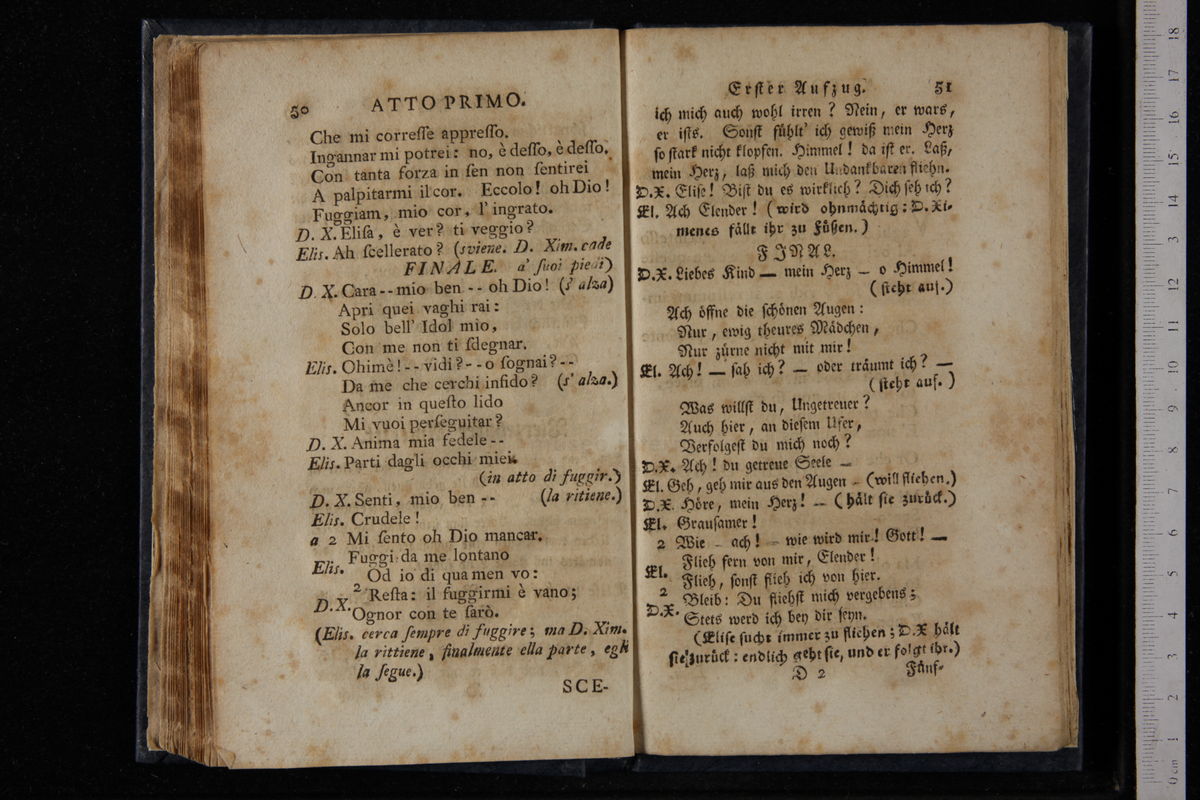 50 ATTO PRIMO.
Che mi correſſe appreſſo.
Ingannar mi potrei: no, è deſſo, è deſſo.
Con tanta forza in ſen non ſentirei
A palpitarmi il cor. Eccolo! oh Dio!
Fuggiam, mio cor, l'ingrato.
D. X. Eliſa, è ver? ti veggio?
Elis. Ah ſcellerato? (sviene. D. Xim. cade
FINALE. a' ſuoi piedi)
D. X. Cara -- mio ben -- oh Dio! (s'alza)
Apri quei vaghi rai:
Solo bell' Idol mio,
Con me non ti ſdegnar.
Elis. Ohimè! -- vidi? -- o ſognai? --
Da me che cerchi infido? (s'alza.)
Ancor in queſto lido
Mi vuoi perſeguitar?
D. X. Anima mia fedele --
Elis. Parti dagli occhi miei.
(in atto di fuggir.)
D. X. Senti, mio ben -- (la ritiene.)
Elis. Crudele!
a 2 Mi ſento oh Dio mancar.
Fuggi da me lontano
Elis.
Od io di qua men vo:
2 Reſta: il fuggirmi è vano;
D. X.
Ognor con te ſarò.
(Elis. cerca ſempre di fuggire; ma D. Xim.
la rittiene, finalmente ella parte, egli
la ſegue.)
SCE-
Erſter Aufzug. 51
ich mich auch wohl irren? Nein, er wars,
er iſts. Sonſt fühlt' ich gewiß mein Herz
ſo ſtark nicht klopfen. Himmel! da iſt er. Laß,
mein Herz, laß mich den Undankbaren fliehn.
D. X. Eliſe! Biſt du es wirklich? Dich ſeh ich?
El. Ach Elender! (wird ohnmächtig: D. Xi-
menes fällt ihr zu Füßen.)
FINAL.
D. X. Liebes Kind — mein Herz — o Himmel!
(ſteht auf.)
Ach öffne die ſchönen Augen:
Nur, ewig theures Mädchen,
Nur zürne nicht mit mir!
El. Ach! — ſah ich? — oder träumt ich? —
(ſteht auf.)
Was willſt du, Ungetreuer?
Auch hier, an dieſem Ufer,
Verfolgeſt du mich noch?
D. X. Ach! du getreue Seele —
El. Geh, geh mir aus den Augen – (will fliehen.)
D. X. Höre, mein Herz! — (hält ſie zurück.)
El. Grauſamer!
2 Wie – ach! – wie wird mir! Gott! —
Flieh fern von mir, Elender!
El.
Flieh, ſonſt flieh ich von hier.
2 Bleib: Du fliehſt mich vergebens;
D. X.
Stets werd ich bey dir ſeyn.
(Eliſe ſucht immer zu fliehen; D. X hält
ſie zurück: endlich geht ſie, und er folgt ihr.)
D 2 Fünf-
0 cm 1 2 3 4 5 6 7 8 9 10 11 12 13 14 15 16 17 18